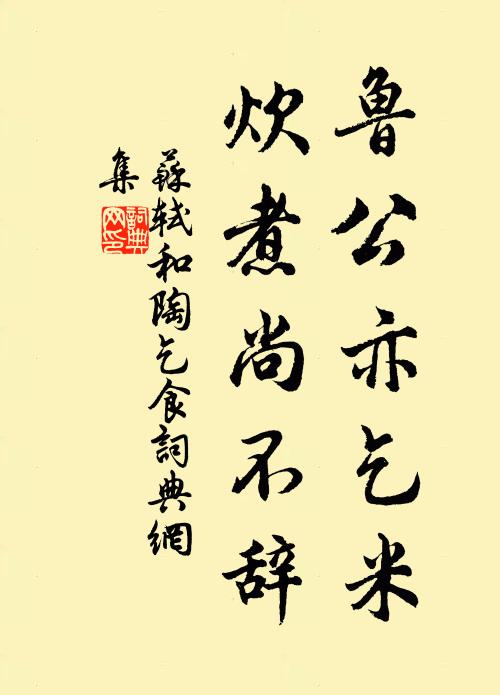 鲁公亦乞米
炊煮尚不辞
蘇軾和陶乞食詞典網
集
詞典
网印